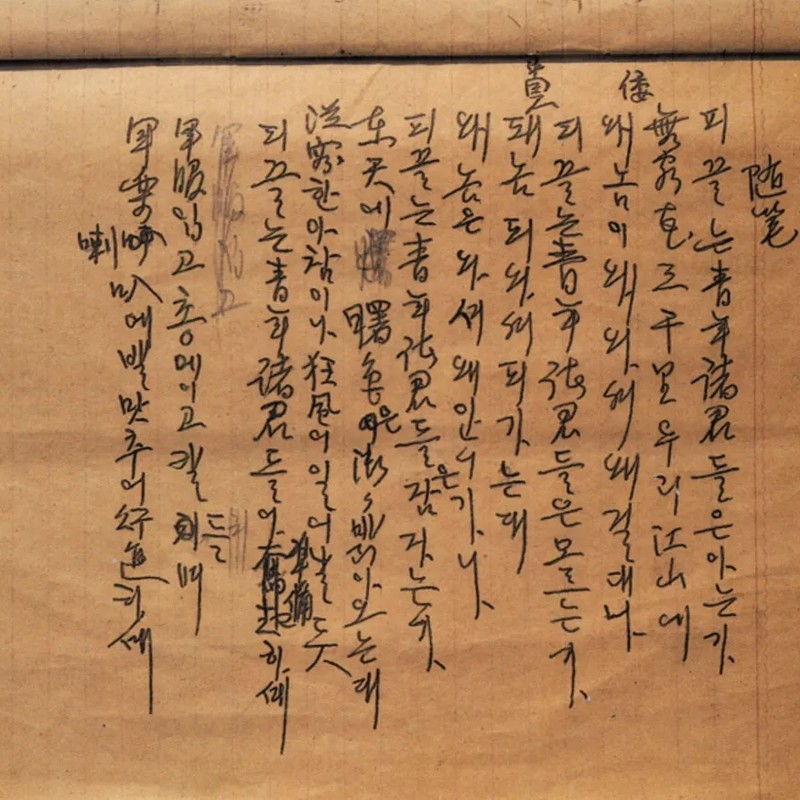 随笔
피끌는靑年諸君들은아는가
無窮花三千里우리江山에
倭
왜놈이왜와서왜걸대나
피끌는靑年諸君들은모르는가
되놈되와서되가는대
왜놈은와서왜안이가나
은
피끌는靑年諸君들잠자는가
東天에曙色은漸々밝아오는대
從容한아참이나狂風이일어날듯
準備
피끌는靑年諸君들아奮起하세
軍服입고
軍服입고총메이고칼
들
며
軍樂
喇叭에발맛추어行進하세